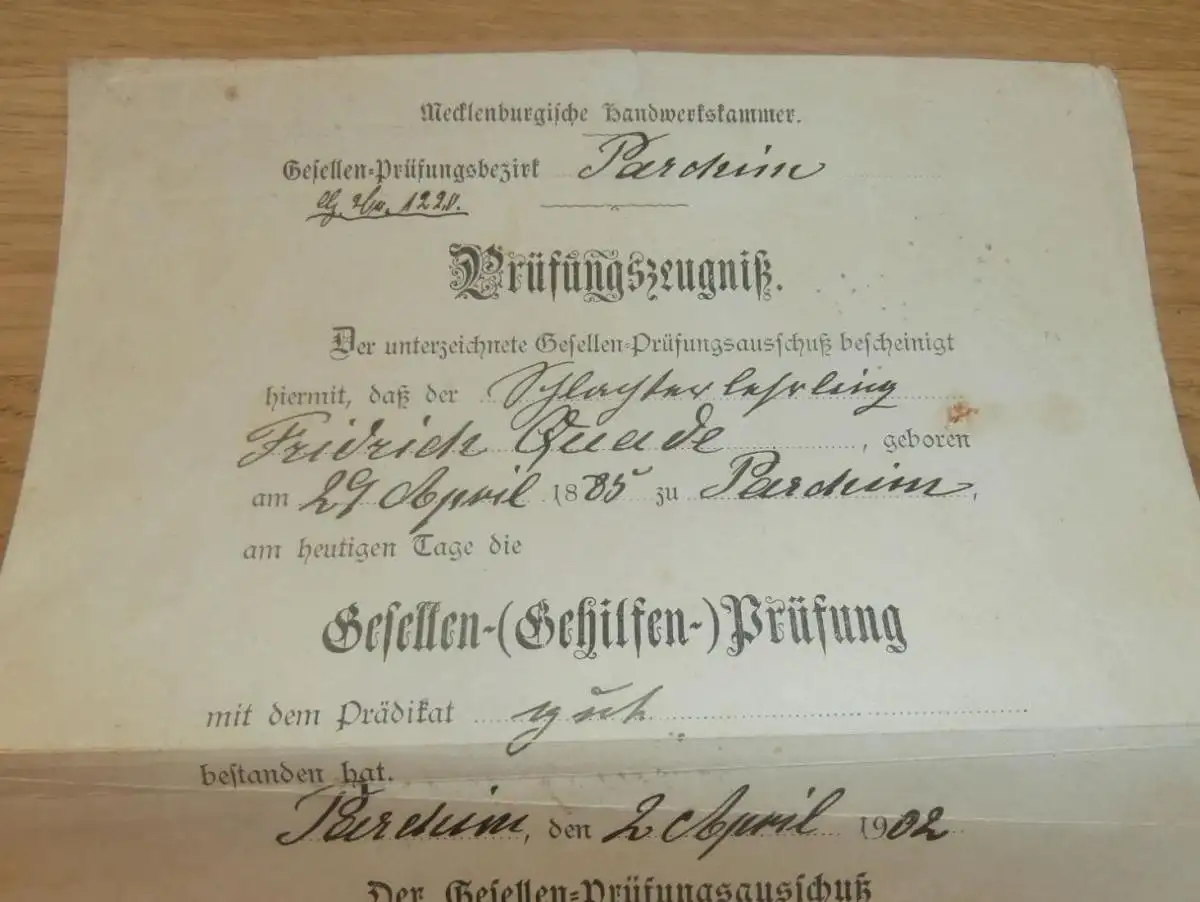 Mecklenburgische Handwerkskammer.
Gesellen-Prüfungsbezirk Parchim
No. 1220.
Prüfungszeugniß.
Der unterzeichnete Gesellen-Prüfungsausschuß bescheinigt
hiermit, daß der Schlachterlehrling
Fridrich Quade, geboren
am 29 April 1885 zu Parchim,
am heutigen Tage die
Gesellen-(Gehilfen-)Prüfung
mit dem Prädikat gut
bestanden hat.
Parchim, den 2 April 1902
Der Gesellen-Prüfungsausschuß